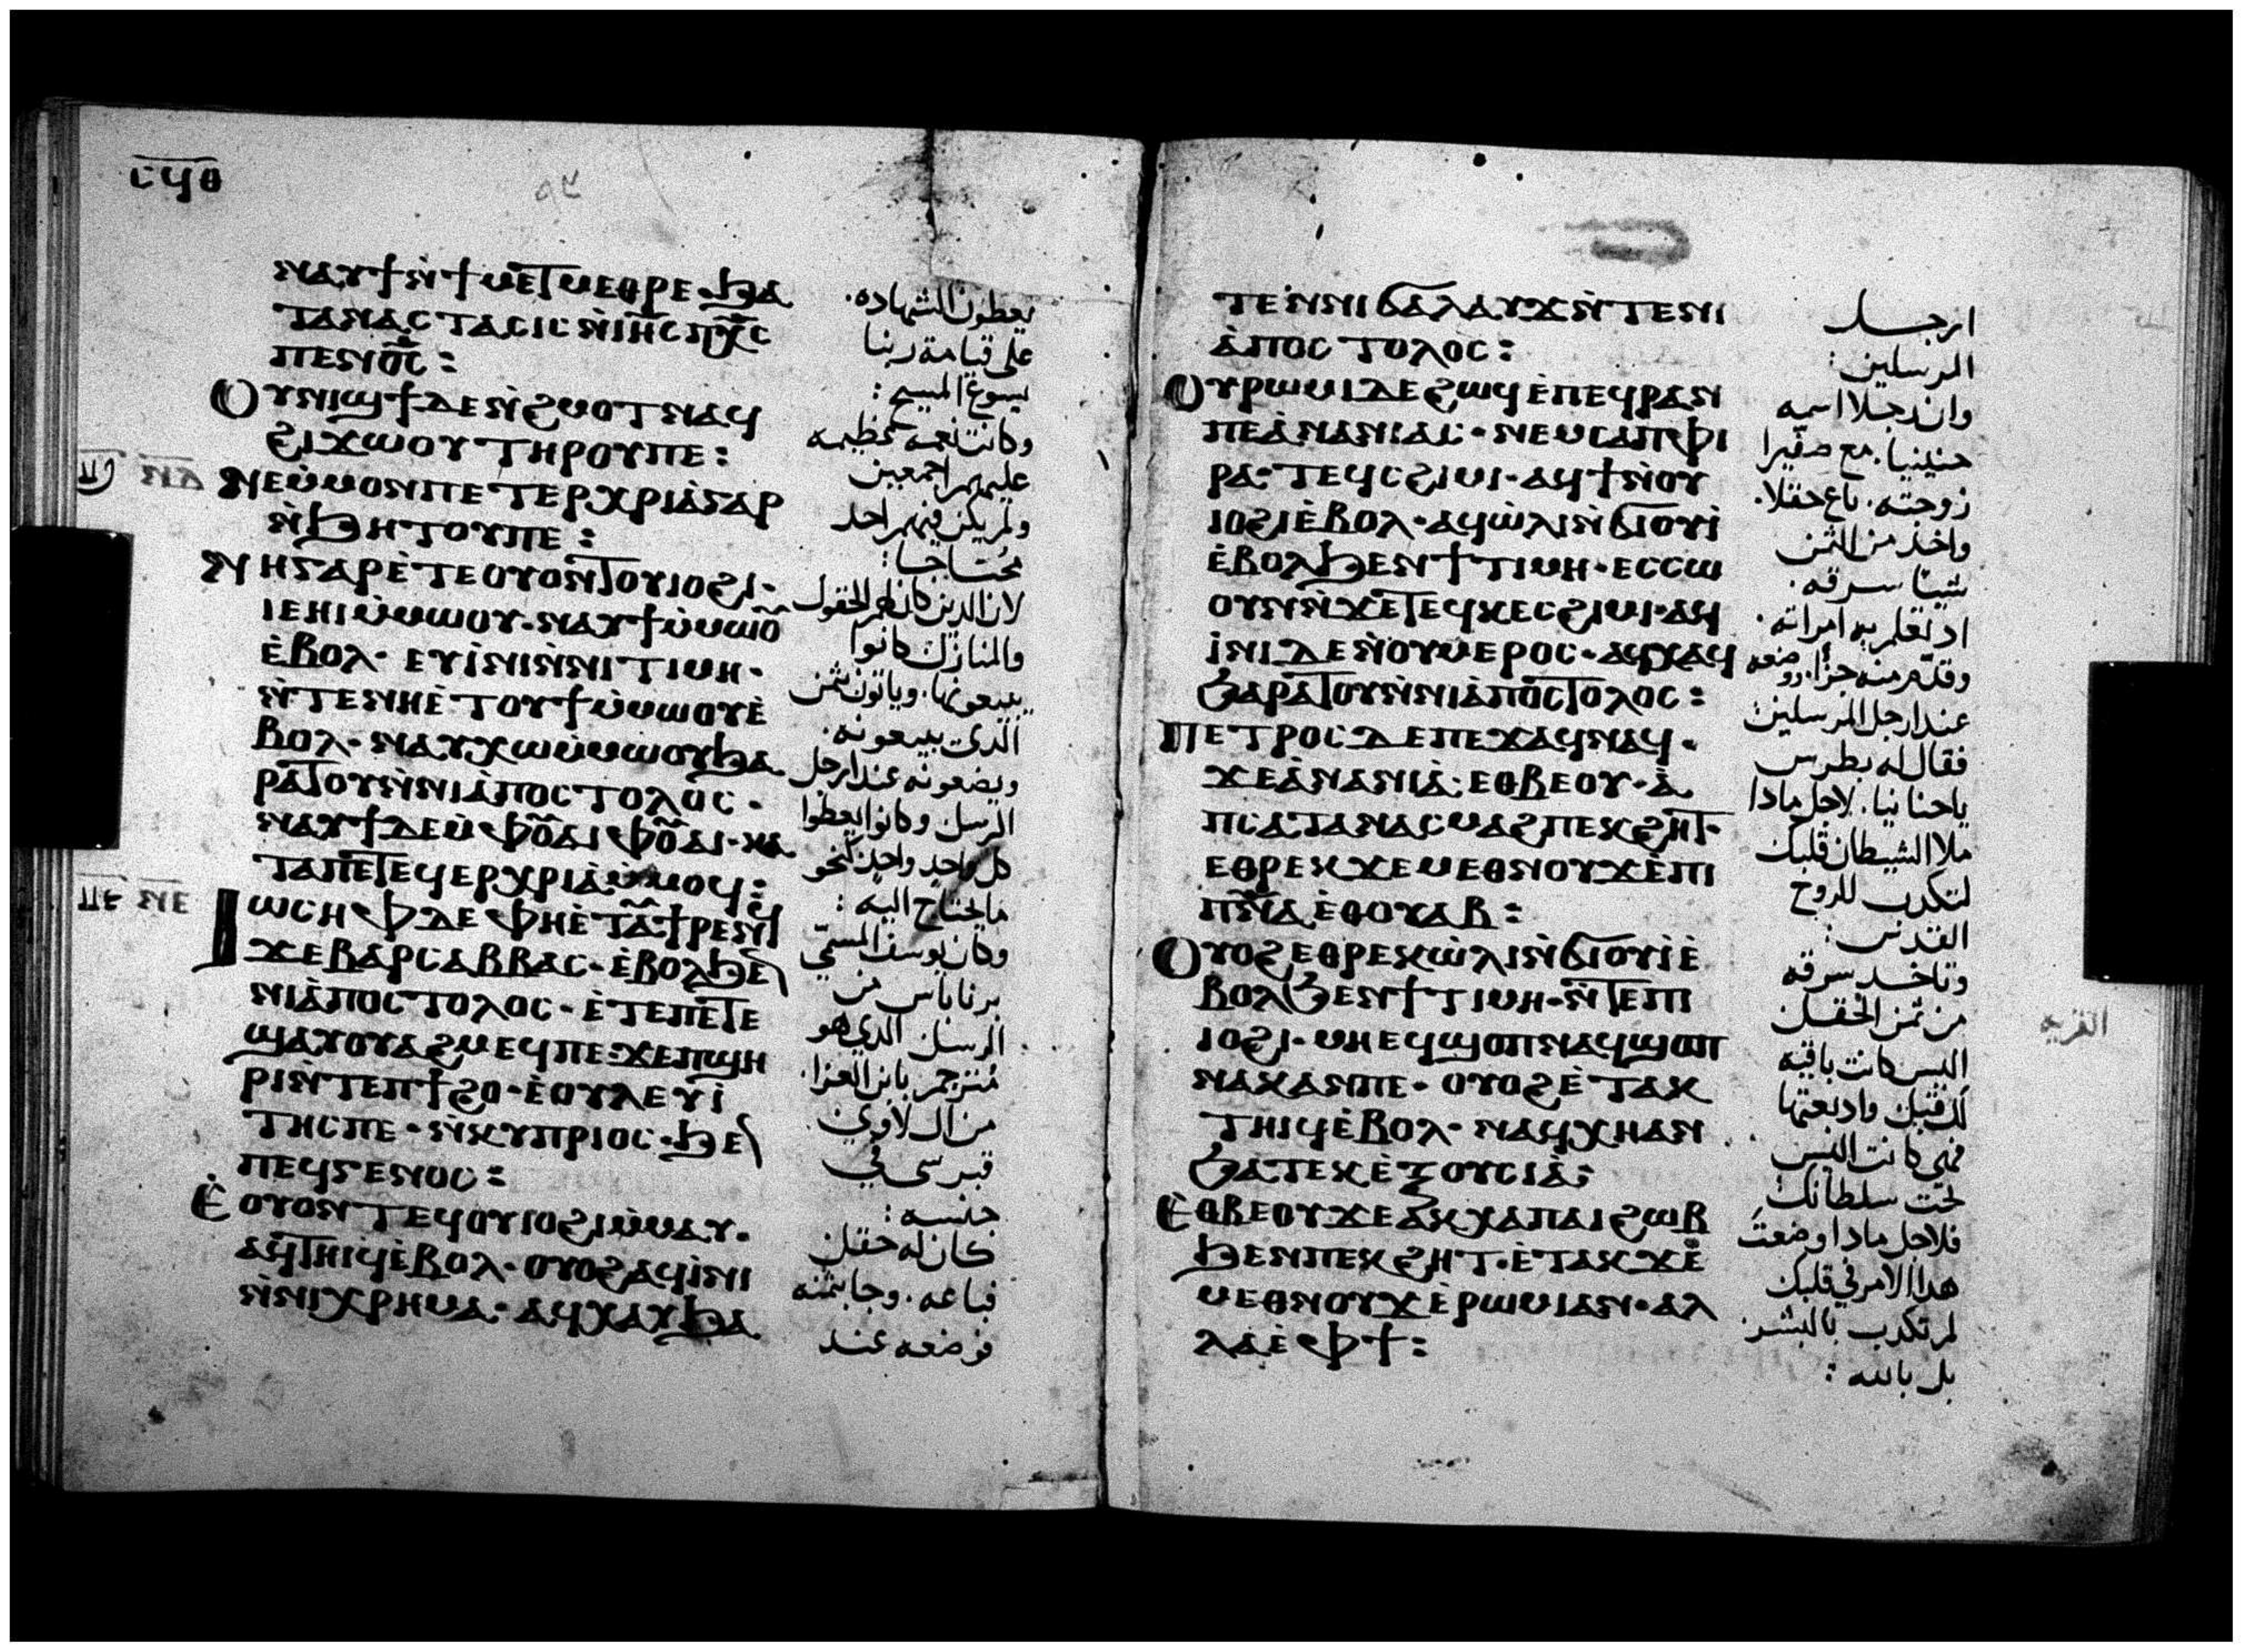 ⲥϥⲑ
ⲛⲁⲩϯⲛ̀ϯⲙⲉⲧⲙⲉⲑⲣⲉ·ϧⲁ
ⲧⲁⲛⲁⲥⲧⲁⲥⲓⲥⲛ̀ⲓⲏ̅ⲥ̅ⲡⲭ̅ⲥ̅
ⲡⲉⲛⲟ̅ⲥ̅:
ⲟⲩⲛⲓϣϯⲇⲉⲛ̀ϩⲙⲟⲧⲛⲁϥ
ϩⲓϫⲱⲟⲩⲧⲏⲣⲟⲩⲡⲉ:
ⲛⲉⲙ̀ⲙⲟⲛⲡⲉⲧⲉⲣⲭⲣⲓⲁ̀ⲅⲁⲣ
ⲛ̀ϧⲏⲧⲟⲩⲡⲉ:
ⲛⲏⲅⲁⲣⲉ̀ⲧⲉⲟⲩⲟⲛⲧⲟⲩⲓⲟϩⲓ·
ⲓⲉⲏⲓⲙ̀ⲙⲱⲟⲩ·ⲛⲁⲩϯⲙ̀ⲙⲱⲟ̅
ⲉ̀ⲃⲟⲗ·ⲉⲩⲓ̀ⲛⲓⲛ̀ⲛⲓⲧⲓⲙⲏ·
ⲛ̀ⲧⲉⲛⲏⲉ̀ⲧⲟⲩϯⲙ̀ⲙⲱⲟⲩⲉ̀
ⲃⲟⲗ·ⲛⲁⲩⲭⲱⲙ̀ⲙⲱⲟⲩϧⲁ
ⲣⲁⲧⲟⲩⲛ̀ⲛⲓⲁ̀ⲡⲟⲥⲧⲟⲗⲟⲥ·
ⲛⲁⲩϯⲇⲉⲙ̀ⲫⲟ̅ⲩⲁⲓⲫⲟ̅ⲩⲁⲓ·ⲕⲁ
ⲧⲁⲡⲉⲧⲉϥⲉⲣⲭⲣⲓⲁ̀ⲙ̀ⲙⲟϥ:
ⲓⲱⲥⲏⲫⲇⲉⲫⲏⲉ̀ⲧⲁⲩϯⲣⲉⲛϥ
ϫⲉⲃⲁⲣⲥⲁⲃⲃⲁⲥ·ⲉ̀ⲃⲟⲗϧⲉ
ⲛⲓⲁ̀ⲡⲟⲥⲧⲟⲗⲟⲥ·ⲉ̀ⲧⲉⲡⲉⲧⲉ
ϣⲁⲩⲟⲩⲁϩⲙⲉϥⲡⲉ·ϫⲉⲡϣⲏ
ⲣⲓⲛ̀ⲧⲉⲡϯϩⲟ·ⲉ̀ⲟⲩⲗⲉⲩⲓ̀
ⲧⲏⲥⲡⲉ·ⲛ̀ⲕⲩⲡⲣⲓⲟⲥ·ϧⲉ
ⲡⲉϥⲅⲉⲛⲟⲥ:
ⲉ̀ⲟⲩⲟⲛⲧⲉϥⲟⲩⲓⲟϩⲓⲙ̀ⲙⲁⲩ·
ⲁϥⲧⲏⲓϥⲉ̀ⲃⲟⲗ·ⲟⲩⲟϩⲁϥⲓ̀ⲛⲓ
ⲛ̀ⲛⲓⲭⲣⲏⲙⲁ·ⲁϥⲭⲁⲩϧⲁ
ⲛⲇ
ⲡⲉ ⲛⲉ
يعطون الشهاده.
على قيامة ربنا
يسوع المسيح:
وكانت نعمه عظيمه
عليهم اجمعين
ولم يكن فيهم احد
محتاجا:
لان الدين كان لهم الحقول
والمنازل كانوا
يبيعونها. وياتون بثمن
الدي يبيعونه.
ويضعونه عند ارجل
الرسل وكانوا يعطوا
كل واحد واحد كنحو
ما يحتاج اليه:
وكان يوسف المسمى
برناباس من
الرسل الدي هو
مترجم بابن العزا.
من ال لاوي.
قبرسي في
جنسه:
كان له حقل
فباعه. وجا بثمنه
فوضعه عند
ⲧⲉⲛ̀ⲛⲓϭⲁⲗⲁⲩϫⲛ̀ⲧⲉⲛⲓ
ⲁ̀ⲡⲟⲥⲧⲟⲗⲟⲥ:
ⲟⲩⲣⲱⲙⲓⲇⲉϩⲱϥⲉ̀ⲡⲉϥⲣⲁⲛ
ⲡⲉⲁ̀ⲛⲁⲛⲓⲁⲥ·ⲛⲉⲙⲥⲁⲡⲫⲓ
ⲣⲁ·ⲧⲉϥⲥϩⲓⲙⲓ·ⲁϥϯⲛ̀ⲟⲩ
ⲓⲟϩⲓⲉ̀ⲃⲟⲗ·ⲁϥⲱ̀ⲗⲓⲛ̀ϭⲓⲟⲩⲓ̀
ⲉ̀ⲃⲟⲗϧⲉⲛϯⲧⲓⲙⲏ·ⲉⲥⲥⲱ
ⲟⲩⲛⲛ̀ϫⲉⲧⲉϥⲕⲉⲥϩⲓⲙⲓ·ⲁϥ
ⲓ̀ⲛⲓⲇⲉⲛ̀ⲟⲩⲙⲉⲣⲟⲥ·ⲁϥⲭⲁϥ
ϧⲁⲣⲁⲧⲟⲩⲛ̀ⲛⲓⲁ̀ⲡⲟⲥⲧⲟⲗⲟⲥ:
ⲡⲉⲧⲣⲟⲥⲇⲉⲡⲉϫⲁϥⲛⲁϥ·
ϫⲉⲁ̀ⲛⲁⲛⲓⲁ̀·ⲉⲑⲃⲉⲟⲩ·ⲁ̀
ⲡⲥⲁⲧⲁⲛⲁⲥⲙⲁϩⲡⲉⲕϩⲏⲧ·
ⲉⲑⲣⲉⲕϫⲉⲙⲉⲑⲛⲟⲩϫⲉ̀ⲡⲓ
ⲡ̅ⲛ̅ⲁ̅ⲉⲑⲟⲩⲁⲃ:
ⲟⲩⲟϩⲉⲑⲣⲉⲕⲱ̀ⲗⲓⲛ̀ϭⲓⲟⲩⲓ̀ⲉ̀
ⲃⲟⲗϧⲉⲛϯⲧⲓⲙⲏ·ⲛ̀ⲧⲉⲡⲓ
ⲓⲟϩⲓ·ⲙⲏⲉϥϣⲟⲡⲛⲁϥϣⲟⲡ
ⲛⲁⲕⲁⲛⲡⲉ·ⲟⲩⲟϩⲉ̀ⲧⲁⲕ
ⲧⲏⲓϥⲉ̀ⲃⲟⲗ·ⲛⲁϥⲭⲏⲁⲛ
ϧⲁⲧⲉⲕⲉ̀ⲝⲟⲩⲥⲓⲁ̀:
ⲉ̀ⲑⲃⲉⲟⲩϫⲉⲁⲕⲭⲁⲡⲁⲓϩⲱⲃ
ϧⲉⲛⲡⲉⲕϩⲏⲧ·ⲉ̀ⲧⲁⲕϫⲉ
ⲙⲉⲑⲛⲟⲩϫⲉ̀ⲣⲱⲙⲓⲁⲛ·ⲁⲗ
ⲗⲁⲉ̀ⲫϯ:
ارجل
المرسلين:
وان رجلا اسمه
حنينيا. مع صفيرا
زوجته. باع حقلا.
واخد من الثمن
شيئا سرقه.
اد تعلم به امراته.
وقدم منه جزا. ووضعه
عند ارجل المرسلين
فقال له بطرس
ياحنانيا. لاجل مادا
ملا الشيطان قلبك
لتكدب للروح
القدس:
وتاخد سرقه
من ثمن الحقل
اليس كانت باقيه
لك قبل واد بعتها
فهي كانت اليس
تحت سلطانك
فلاجل مادا وضعت
هدا الامر في قلبك
لم تكدب بالبشر.
بل بالله:
القريه